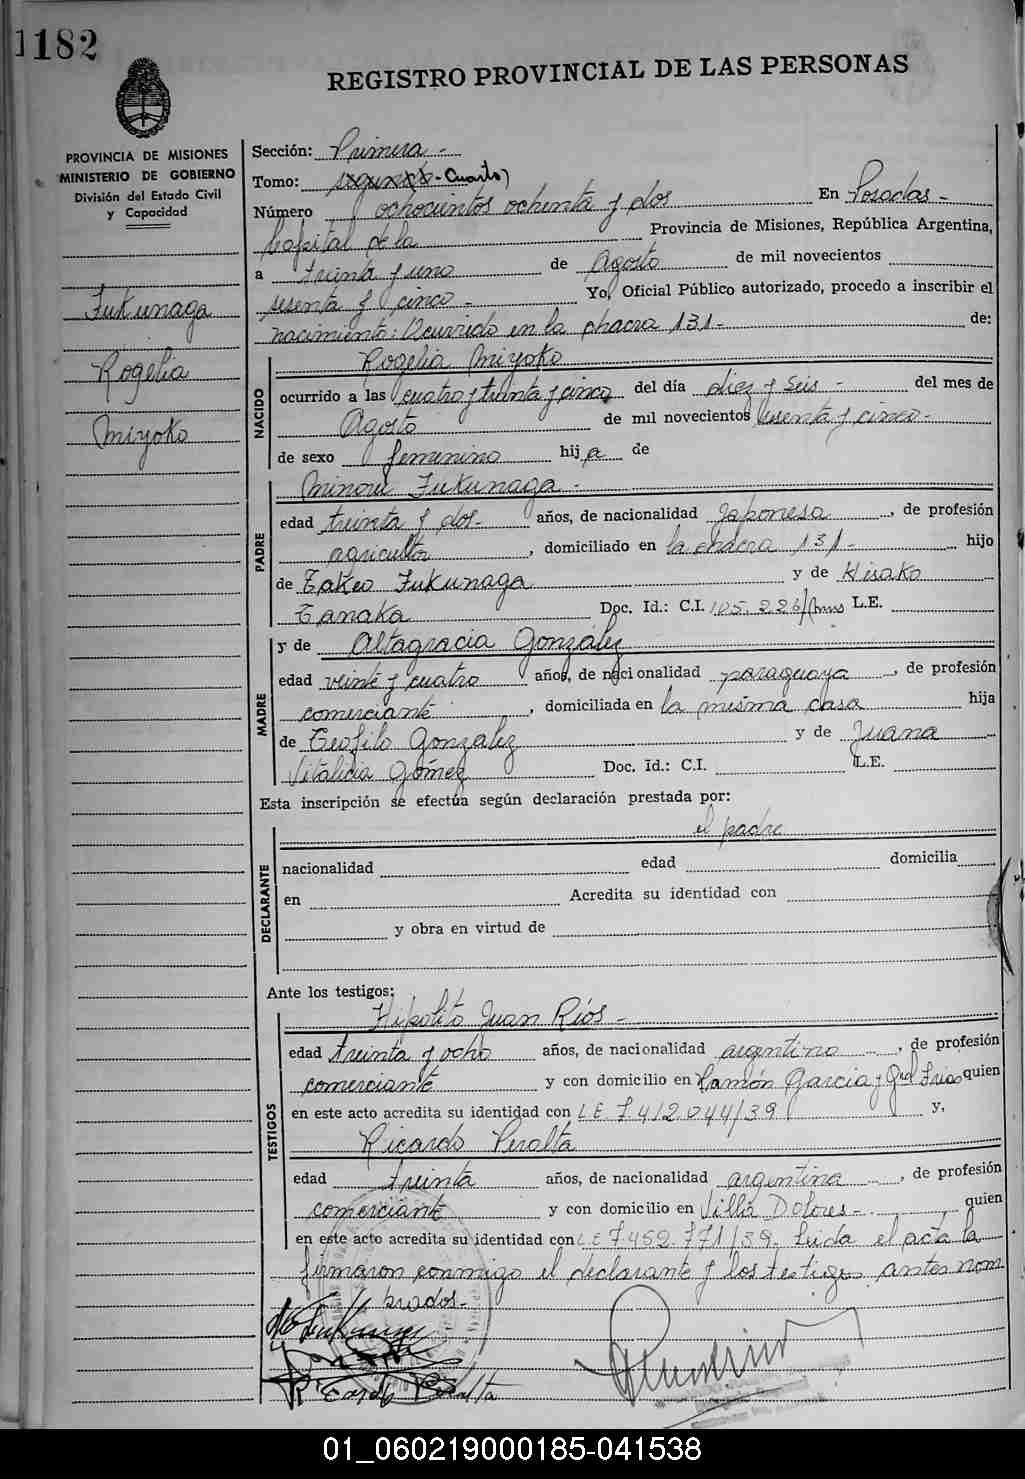 1182
REGISTRO PROVINCIAL DE LAS PERSONAS
PROVINCIA DE MISIONES
MINISTERIO DE GOBIERNO
División del Estado Civil
y Capacidad
Fukunaga
Rogelia
Miyoko
Sección: Primera -
Tomo: segundo - Cuarto)
Número ochocientos ochenta y dos En Posadas -
Capital de la Provincia de Misiones, República Argentina,
a treinta y uno de Agosto de mil novecientos
sesenta y cinco - Yo, Oficial Público autorizado, procedo a inscribir el
nacimiento: Ocurrido en la chacra 131- de:
NACIDO
Rogelia Miyoko
ocurrido a las cuatro y treinta y cinco del día diez y seis - del mes de
Agosto de mil novecientos sesenta y cinco -
de sexo femenino hija de
PADRE
Minoru Fukunaga -
edad treinta y dos - años, de nacionalidad japonesa, de profesión
agricultor, domiciliado en la chacra 131 - hijo
de Takeo Fukunaga y de Hisako
Tanaka Doc. Id.: C.I. 105.226/ L.E.
MADRE
y de Altagracia González
edad veinte y cuatro años, de nacionalidad paraguaya, de profesión
comerciante, domiciliada en la misma casa hija
de Teofilo González y de Juana
Vitalicia Gómez Doc. Id.: C.I. L.E.
Esta inscripción se efectúa según declaración prestada por:
DECLARANTE
el padre
nacionalidad edad domicilia
en Acredita su identidad con
y obra en virtud de
Ante los testigos:
TESTIGOS
Hipolito Juan Ríos -
edad treinta y ocho años, de nacionalidad argentino, de profesión
comerciante y con domicilio en Ramón Garcia y Gral Frias quien
en este acto acredita su identidad con L E 7.412.044/39 y,
Ricardo Peralta
edad treinta años, de nacionalidad argentina, de profesión
comerciante y con domicilio en Villa Dolores -, quien
en este acto acredita su identidad con L E 7.452.771/39. Leida el acta la
firmaron conmigo el declarante y los testigos antes nom
brados-
Peralta
01_060219000185-041538